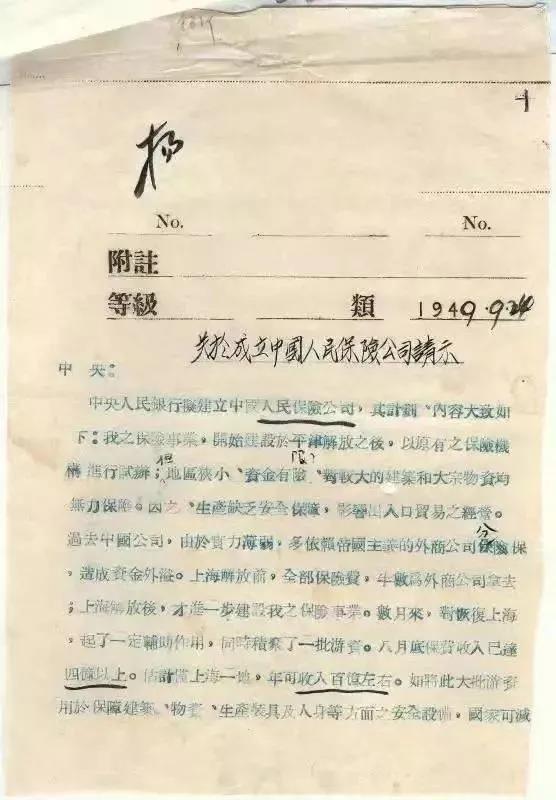 No.
No.
附註
等級 類 1949.9.24
关於成立中國人民保險公司請示
中央：
中央人民銀行擬建立中國人民保險公司，其計劃、內容大致如
下：我之保險事業，開始建設於平津解放之後，以原有之保險機
構進行試辦；但地區狹小、資金有險、對較大的建築和大宗物資均
限？
無力保障。因之、生產缺乏安全保障，影響出入口貿易之經營。
過去中國公司，由於實力薄弱，多依賴帝國主義的外商公司分保
，造成資金外溢。上海解放前，全部保險費，半數為外商公司拿去
；上海解放後，才進一步建設我之保險事業。數月來，對恢復上海
，起了一定輔助作用，同時積累了一批游資。八月底保費收入已達
四億以上。估計僅上海一地，年可收入百億左右。如將此大批游資
用於保障建築、物資、生產裝具及人身等方面之安全設備，國家可減